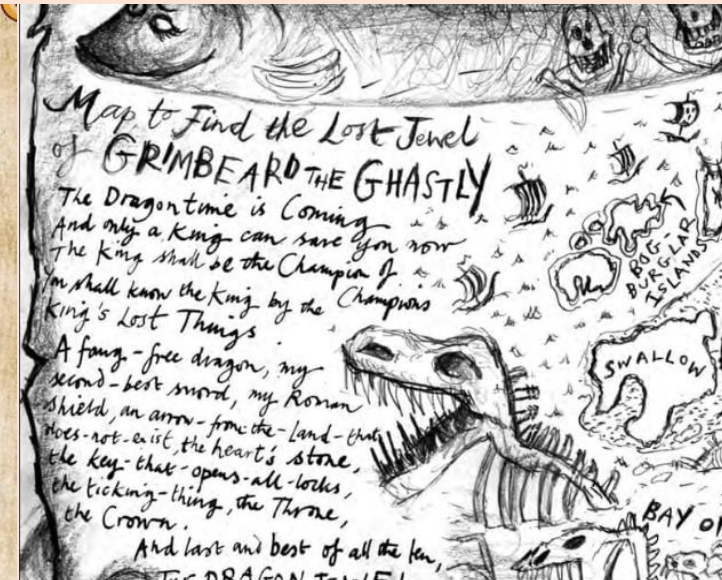 Map to Find the Lost Jewel
of GRIMBEARD THE GHASTLY
The Dragontime is Coming
And only a King can save you now
The King shall be the Champion of
shall know the King by the Champions
King's Lost Things
A fang-free dragon, my
second-best sword, my Roman
shield, an arrow-from-the-land-that
does-not-exist, the heart's stone,
the key-that-opens-all-locks,
the ticking-thing, the Throne,
the Crown.
And last and best of all the ten,
THE DRAGON JEWEL!
BOG-
BURGLAR
ISLANDS
SWALLOW
BAY